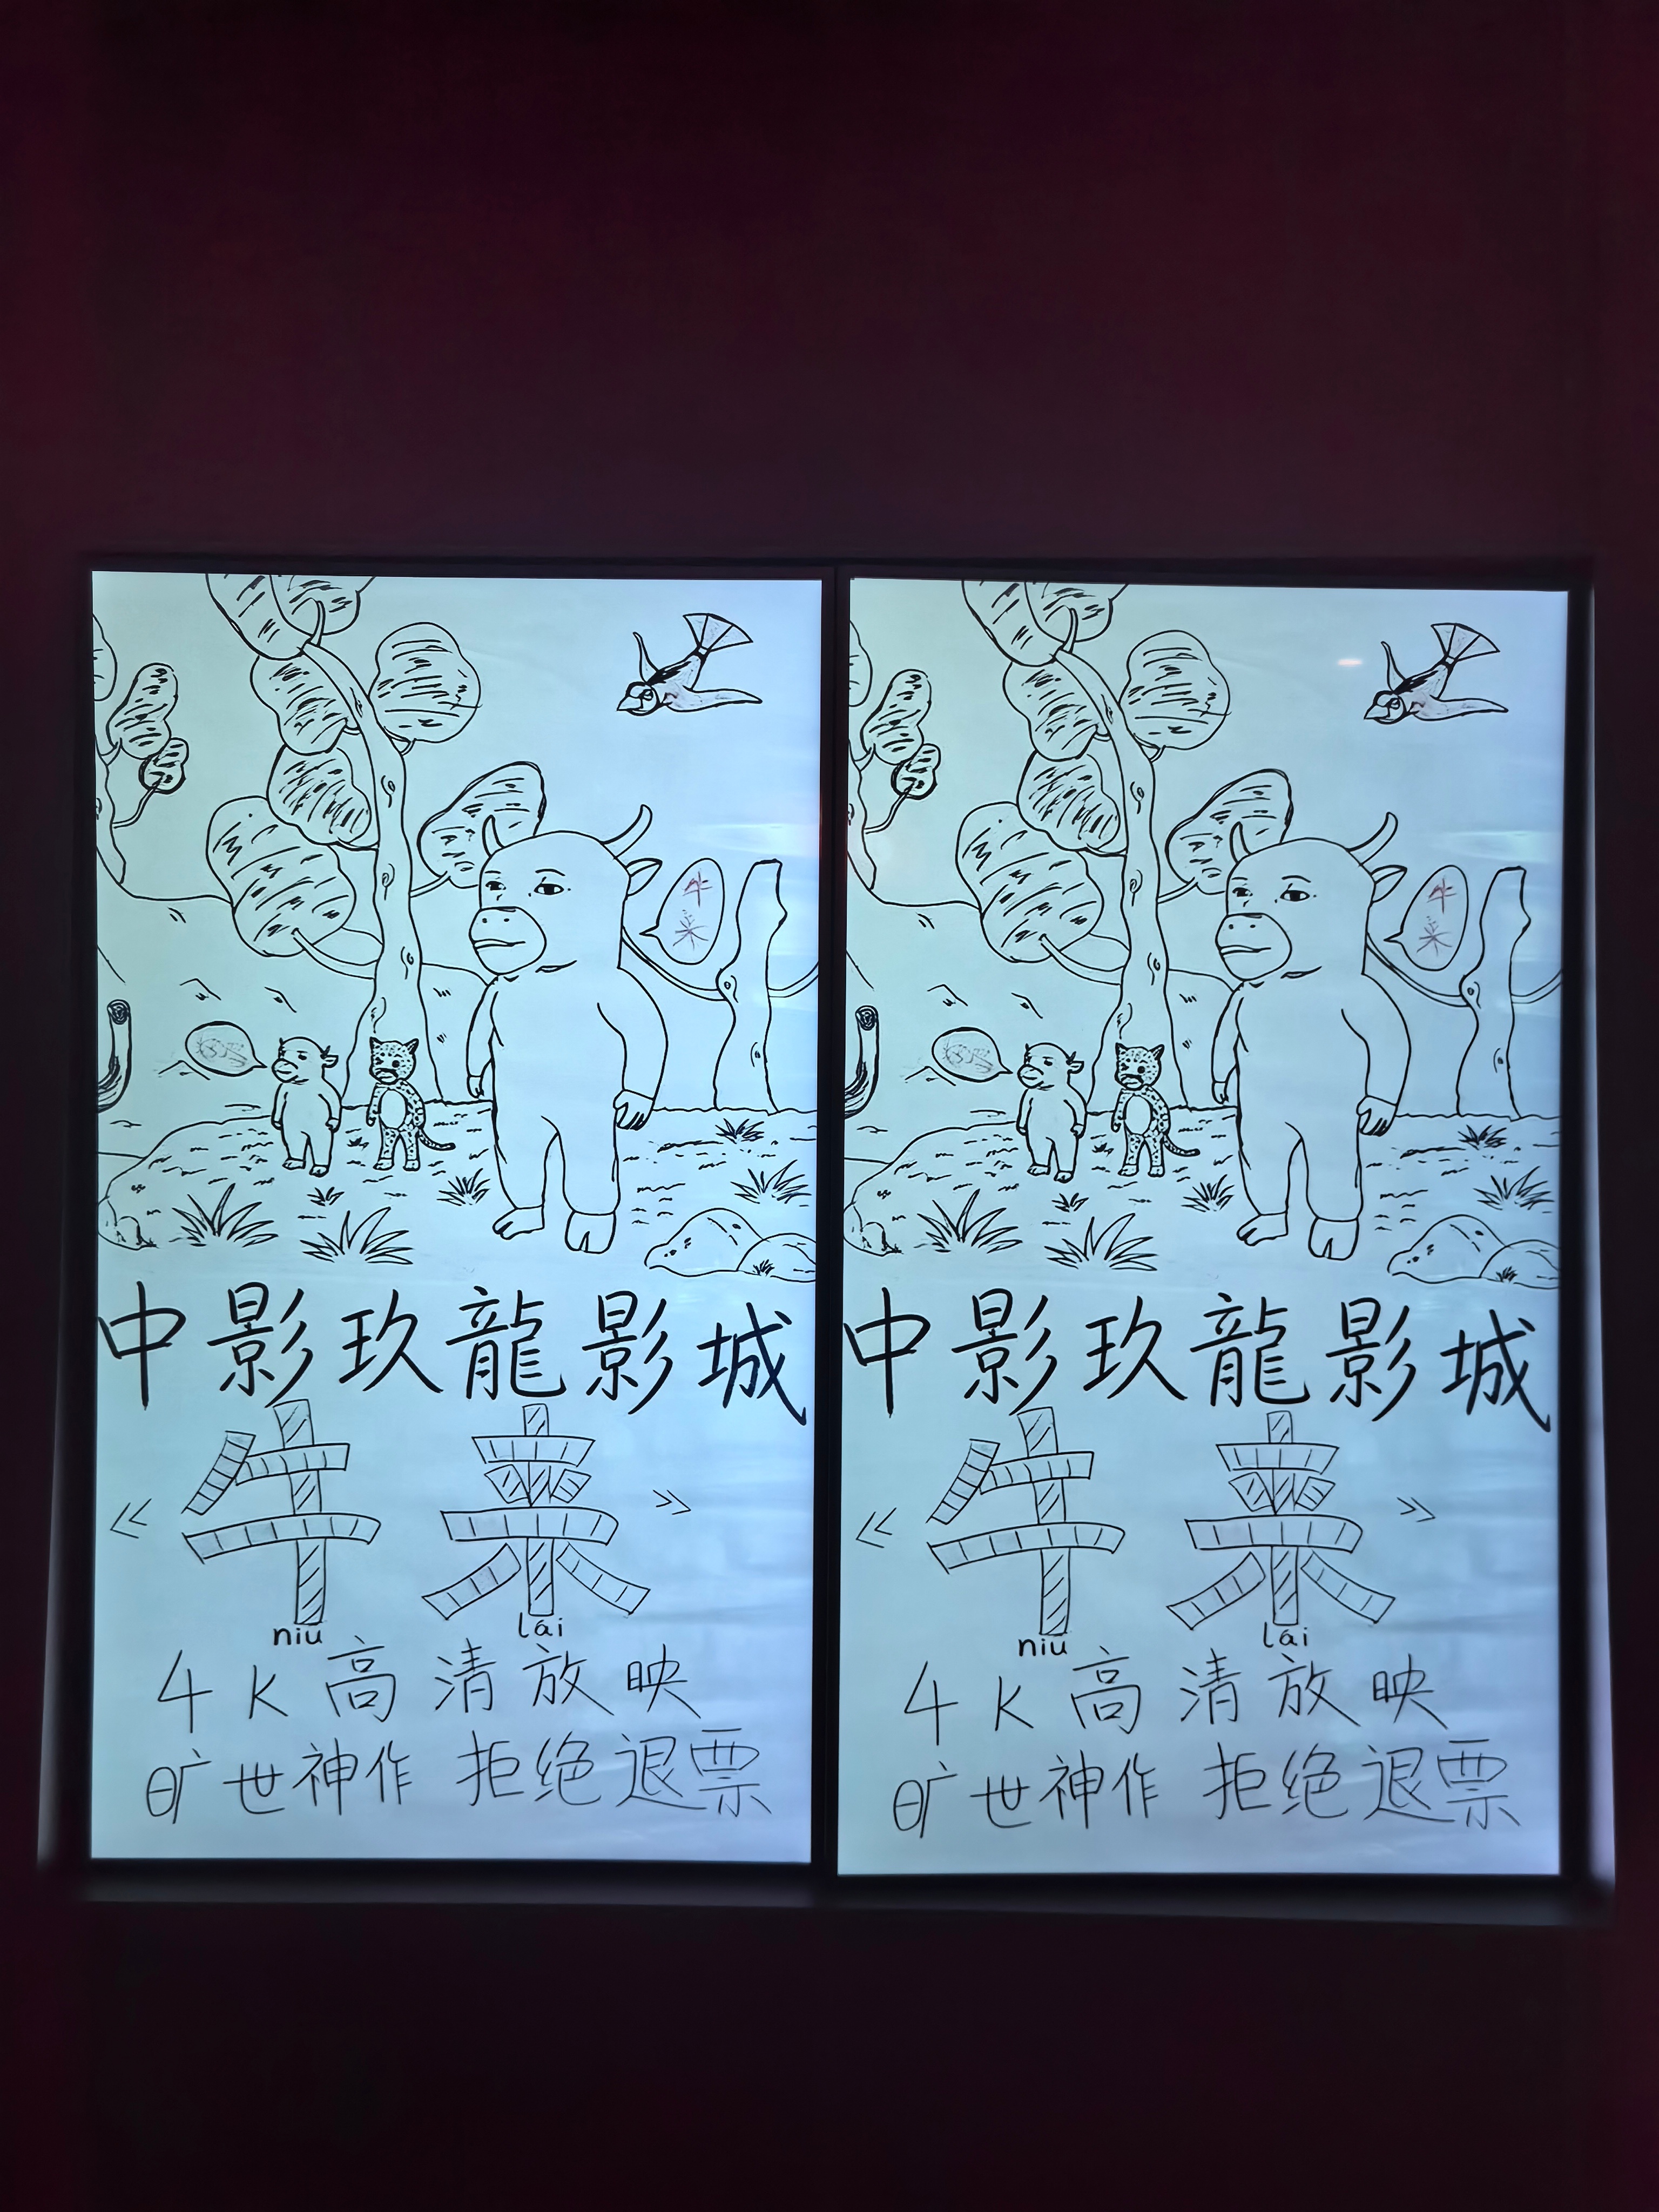 牛
来
中影玖龍影城
《牛来》
niú lái
4K高清放映
旷世神作 拒绝退票
牛
来
中影玖龍影城
《牛来》
niú lái
4K高清放映
旷世神作 拒绝退票